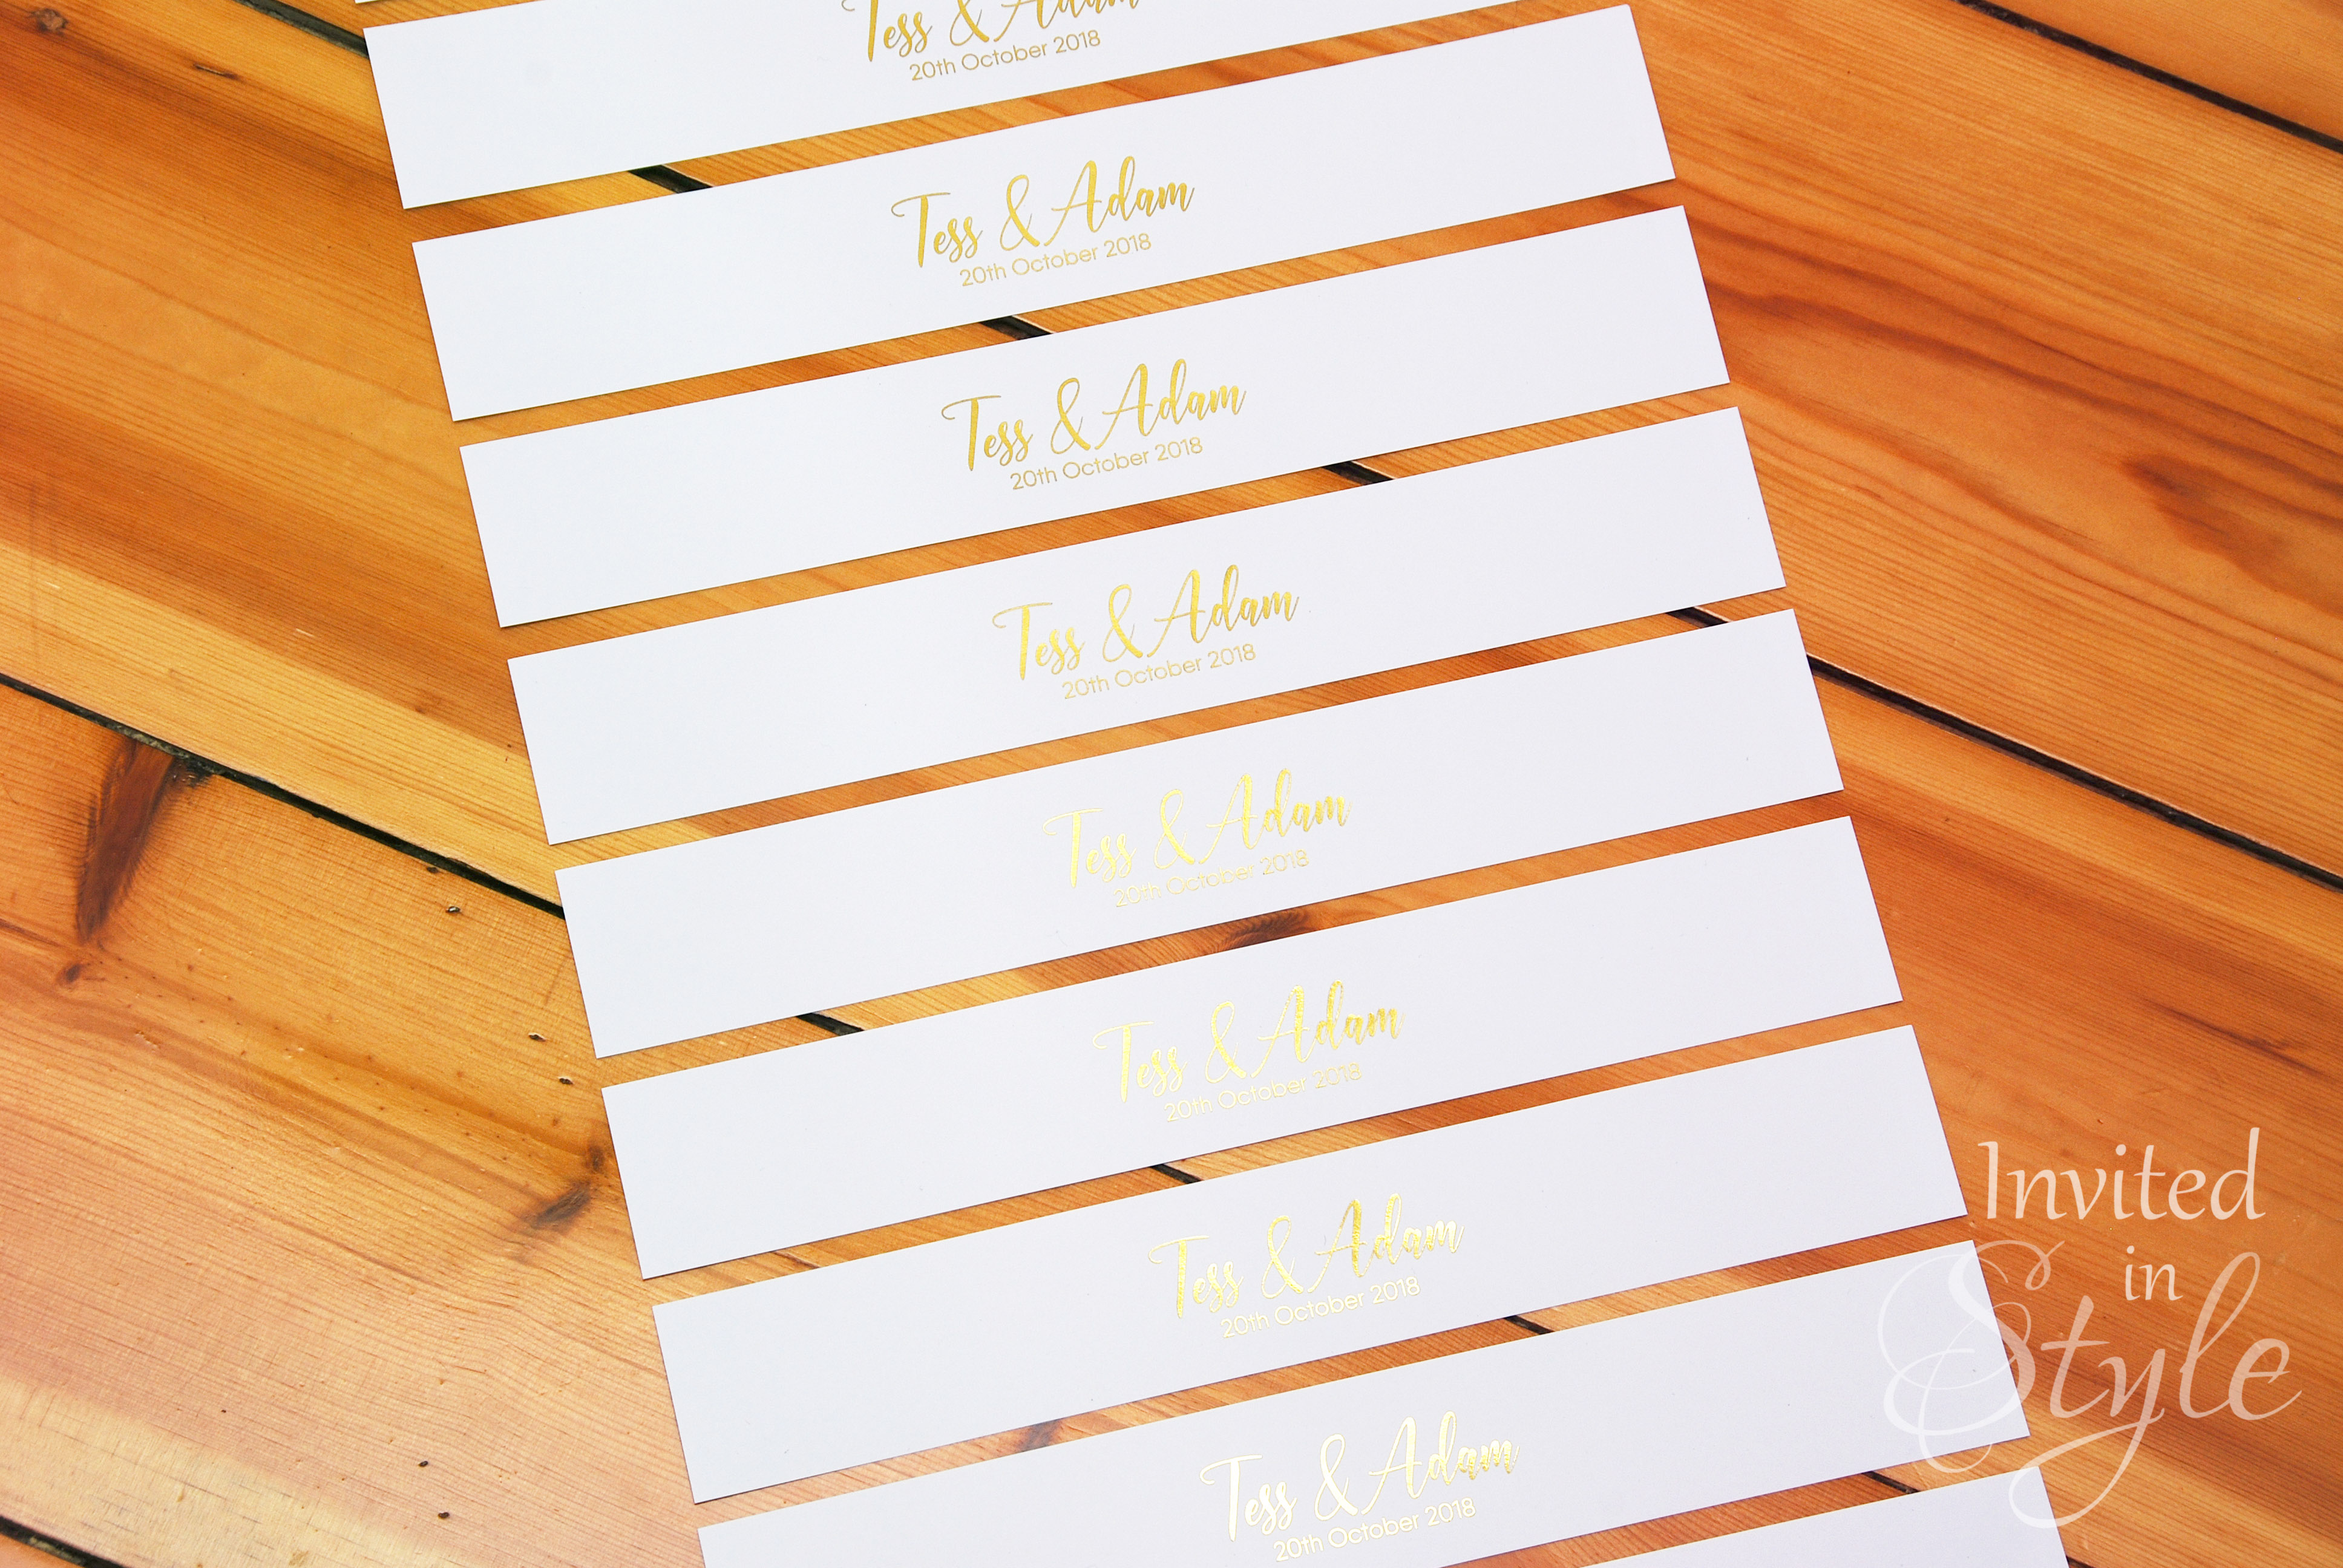 Tess & Adam
20th October 2018
Tess & Adam
20th October 2018
Tess & Adam
20th October 2018
Tess & Adam
20th October 2018
Tess & Adam
20th October 2018
Tess & Adam
20th October 2018
Tess & Adam
20th October 2018
Tess & Adam
20th October 2018
Invited
in
Style